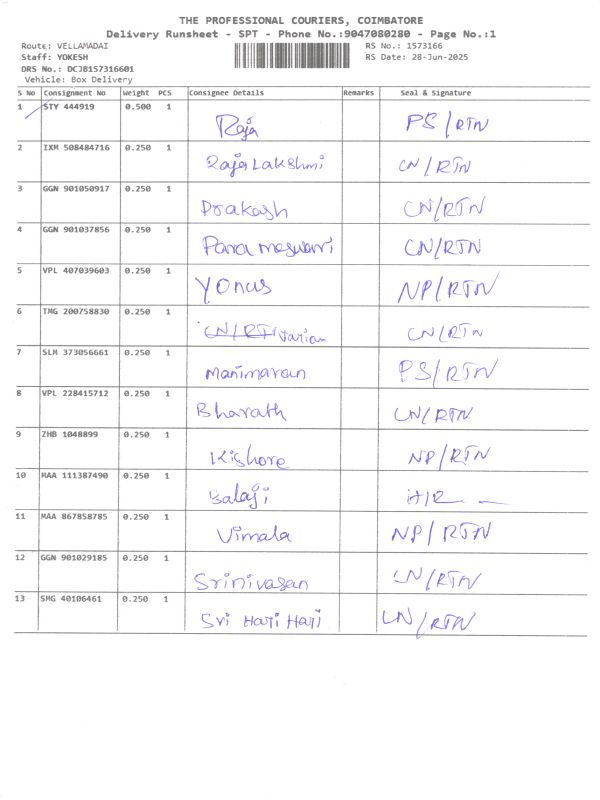 THE PROFESSIONAL COURIERS, COIMBATORE
Delivery Runsheet - SPT - Phone No.:9047080280 - Page No.:1
Route: VELLAMADAI RS No.: 1573166
Staff: YOKESH RS Date: 28-Jun-2025
DRS No.: DCJB157316601
Vehicle: Box Delivery
S No Consignment No Weight PCS Consignee Details Remarks Seal & Signature
1 STY 444919 0.500 1
Raja PS/RTN
2 IXM 508484716 0.250 1
RajaLakshmi CN/RTN
3 GGN 901050917 0.250 1
Prakash CN/RTN
4 GGN 901037856 0.250 1
Parameswari CN/RTN
5 VPL 407039603 0.250 1
Yonus NP/RTN
6 TMG 200758830 0.250 1
CN/RTN CN/RTN
7 SLM 373056661 0.250 1
Manimaran PS/RTN
8 VPL 228415712 0.250 1
Bharath CN/RTN
9 ZHB 1048899 0.250 1
Kishore NP/RTN
10 MAA 111387490 0.250 1
Balaji
11 MAA 867858785 0.250 1
Vimala NP/RTN
12 GGN 901029185 0.250 1
Srinivasan CN/RTN
13 SMG 40106461 0.250 1
Sri Hari Hari CN/RTN